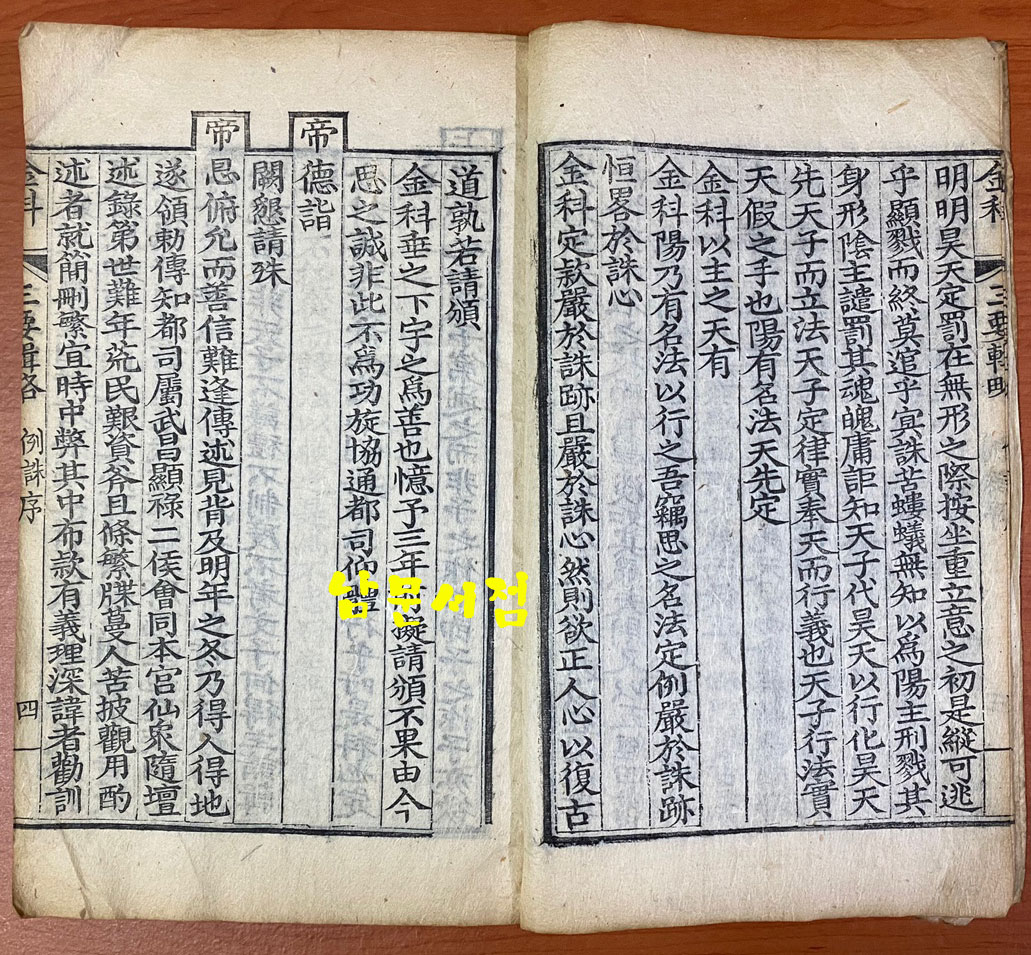 金科
三要輯略
明明昊天定罰在無形之際按坐重立意之初是縱可逃
乎顯戮而終莫逭乎冥誅苦螻蟻無知以爲陽主刑戮其
身形陰主譴罰其魂魄庸詎知天子代昊天以行化昊天
先天子而立法天子定律實奉天而行義也天子行法實
天假之手也陽有名法天先定
金科以主之天有
金科陽乃有名法以行之吾竊思之名法定例嚴於誅跡
恒畧於誅心
金科定款嚴於誅跡且嚴於誅心然則欲正人心以復古
道孰若請頒
金科垂之下宇之爲善也憶予三年前擬請頒不果由今
思之誠非此不爲功旋協通都司仰體
帝
德詣
闕懇請殊
帝
恩俯允而善信難逢傳述見背及明年之冬乃得入得地
遂領勅傳知都司屬武昌顯祿二侯會同本宮仙衆隨壇
述錄第世難年荒民艱資斧且條繁牒蔓人苦披觀用酌
述者就簡刪繁宜時中弊其中布款有義理深諱者勸訓
金科
三要輯略
例誅序
四
남문서점